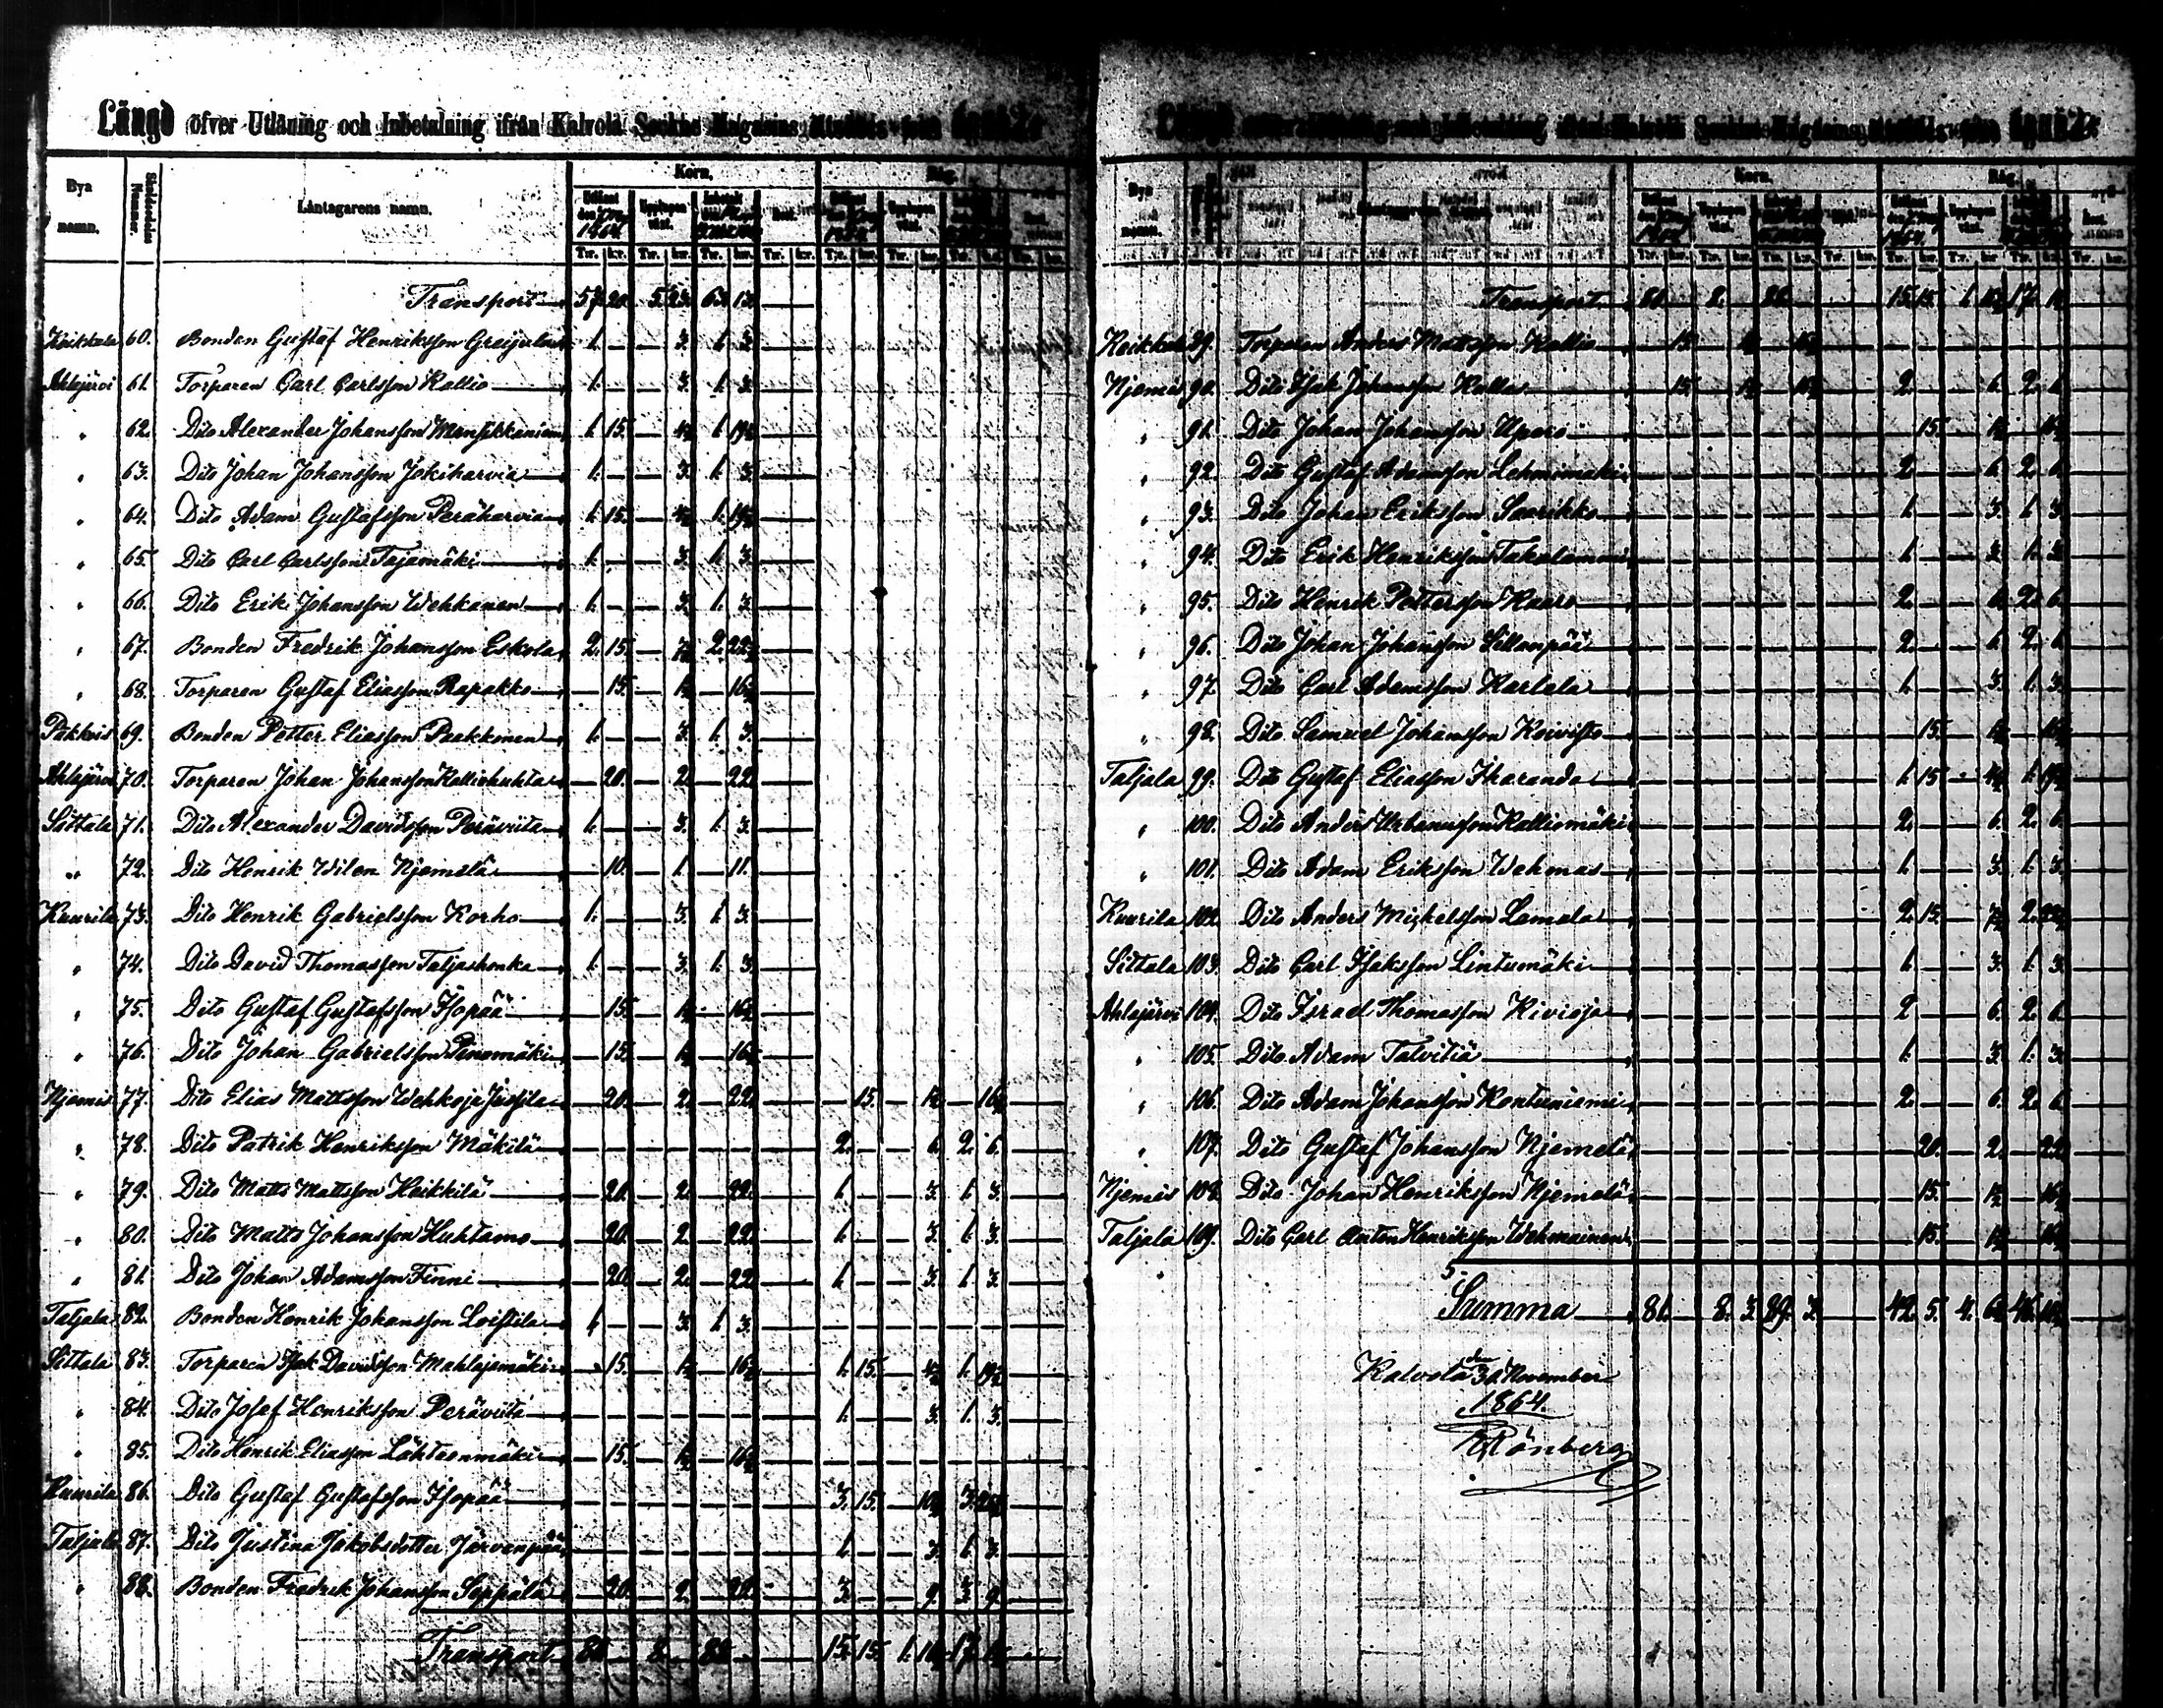 Längd öfver Utlåning och Inbetalning ifrån Kalvola Sockne Magasins
Korn. Råg.
Bya namn. Låntagarens namn. Utlånt den 1864. Upplupen växt. Inbetalt Rest.
Tr. kr. Tr. kr. Tr. kr. Tr. kr. Tr. kr. Tr. kr. Tr. kr. Tr. kr.
Transport 57. 20. 5. 23. 63. 13.
Keikkala 60. Bonden Gustaf Henriksson 1. — 3. 1. 3.
Ahlajärvi 61. Torparen Carl Carlsson Kallio 1. — 3. 1. 3.
" 62. Dito Alexander Johansson Mansikkaniemi 1. 15. — 4½ 1. 19½
" 63. Dito Johan Johansson Jokiharvia 1. — 3. 1. 3.
" 64. Dito Adam Gustafsson Peräharvia 1. 15. — 4½ 1. 19½
" 65. Dito Carl Carlsson Tajamäki 1. — 3. 1. 3.
" 66. Dito Erik Johansson Wehkanen 1. — 3. 1. 3.
" 67. Bonden Fredrik Johansson Eskola 2. 15. — 7½ 2. 22½
" 68. Torparen Gustaf Eliasson Rapakko — 15. — 1½ — 16½
69. Bonden Petter Eliasson Paakkonen 1. — 3. 1. 3.
Ahlajärvi 70. Torparen Johan Johansson Kalliohuhta — 20. — 2. — 22.
Sittala 71. Dito Alexander Davidsson Peräviita 1. — 3. 1. 3.
" 72. Dito Henrik Wilen Njemelä — 10. — 1. — 11.
Kuurila 73. Dito Henrik Gabrielsson Korho 1. — 3. 1. 3.
" 74. Dito David Thomasson Taljashonka 1. — 3. 1. 3.
" 75. Dito Gustaf Gustafsson Isopää — 15. — 1½ — 16½
" 76. Dito Johan Gabrielsson Penomäki — 15. — 1½ — 16½
Njemis 77. Dito Elias Mattsson Wehkoja Jussila — 20. — 2. — 22. — 15. — 1½ — 16½
" 78. Dito Patrik Henriksson Mäkilä — — — — — — 2. — — 6. 2. 6.
" 79. Dito Matts Mattsson Heikkilä — 20. — 2. — 22. 1. — — 3. 1. 3.
" 80. Dito Matts Johansson Huhtamo — 20. — 2. — 22. 1. — — 3. 1. 3.
" 81. Dito Johan Adamsson Finni — 20. — 2. — 22. 1. — — 3. 1. 3.
Taljala 82. Bonden Henrik Johansson Loistila 1. — 3. 1. 3. — — — — — —
Sittala 83. Torparen Isak Davidsson Mahlajamäki — 15. — 1½ — 16½ 1. 15. — 4½ 1. 19½
" 84. Dito Josef Henriksson Peräviita — — — — — — 1. — — 3. 1. 3.
" 85. Dito Henrik Eliasson Lähteenmäki — 15. — 1½ — 16½ — — — — — —
Kuurila 86. Dito Gustaf Gustafsson Isopää — — — — — — 3. 15. — 10½ 3. 25½
Taljala 87. Dito Justina Jakobsdotter Järvenpää — — — — — — 1. — — 3. 1. 3.
" 88. Bonden Fredrik Johansson Seppälä — 20. — 2. — 22. 3. — — 9. 3. 9.
Transport 15. 15. 1. 17.
Korn. Råg.
Transport 81. 8. 15. 15. 1. 17.
Keikkala 89. Torparen Anders Mattsson Kallio — 15. — 1½ — 16½ — — — — — —
Njemis 90. Dito Isak Johansson Kallas — 15. — 1½ — 16½ 2. — — 6. 2. 6.
" 91. Dito Johan Johansson Uparo — 15. — 1½ — 16½
" 92. Dito Gustaf Adamsson Lehmimäki 2. — — 6. 2. 6.
" 93. Dito Johan Eriksson Saarikko 1. — — 3. 1. 3.
" 94. Dito Erik Henriksson Takalammi 1. — — 3. 1. 3.
" 95. Dito Henrik Pettersson Kaaro 2. — — 6. 2. 6.
" 96. Dito Johan Johansson Sillanpää 2. — — 6. 2. 6.
" 97. Dito Carl Adamsson Kartala 1. — — 3. 1. 3.
" 98. Dito Samuel Johansson Koivisto — 15. — 1½ — 16½
Taljala 99. Dito Gustaf Eliasson Iharanda 1. 15. — 4½ 1. 19½
" 100. Dito Anders Urbanusson Kalliomäki 2. — — 6. 2. 6.
" 101. Dito Adam Eriksson Wehmas 1. — — 3. 1. 3.
Kuurila 102. Dito Anders Michelsson Lamala 2. 15. — 7½ 2. 22½
Sittala 103. Dito Carl Isaksson Lintumäki 1. — — 3. 1. 3.
Ahlajärvi 104. Dito Israel Thomasson Kivioja 2. — — 6. 2. 6.
" 105. Dito Adam Talvitiä 1. — — 3. 1. 3.
" 106. Dito Adam Johansson Kontuniemi 2. — — 6. 2. 6.
" 107. Dito Gustaf Johansson Njemelä — 20. — 2. — 22.
Njemis 108. Dito Johan Henriksson Njemelä — 15. — 1½ — 16½
Taljala 109. Dito Carl Anton Henriksson Wehmainen — 15. — 1½ — 16½
Summa 81. — 8. 3. 89. 3. 42. 5. 4. 6½ 46. 11½
Kalvola den 30 November
1864.
Rönberg